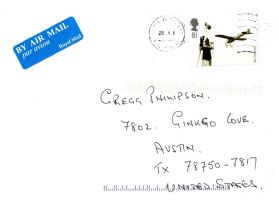 BY AIR MAIL
par avion
Royal Mail
81
GREGG PHILIPSON.
7802. GINKGO COVE.
AUSTIN.
TX 78750-7817
UNITED STATES.